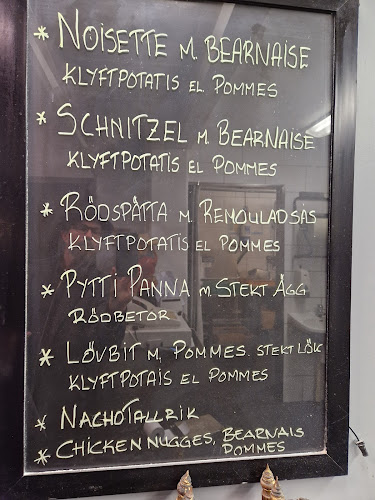 * NOISETTE M. BEARNAISE
KLYFTPOTATIS EL. POMMES
* SCHNITZEL M BEARNAISE
KLYFTPOTATIS EL POMMES
* RÖDSPÄTTA M. REMOULADSÅS
KLYFTPOTATIS EL POMMES
* PYTTI PANNA M. STEKT ÄGG
RÖDBETOR
* LÖVBIT M, POMMES. STEKT LÖK
KLYFTPOTAIS EL POMMES
* NACHOTALLRIK
* CHICKEN NUGGES, BEARNAIS
POMMES